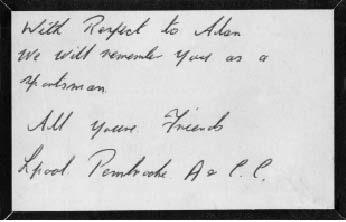 With Respect to Alan
We will remember you as a
sportsman
All youre Friends
Lpool. Pembroke A & C.C.